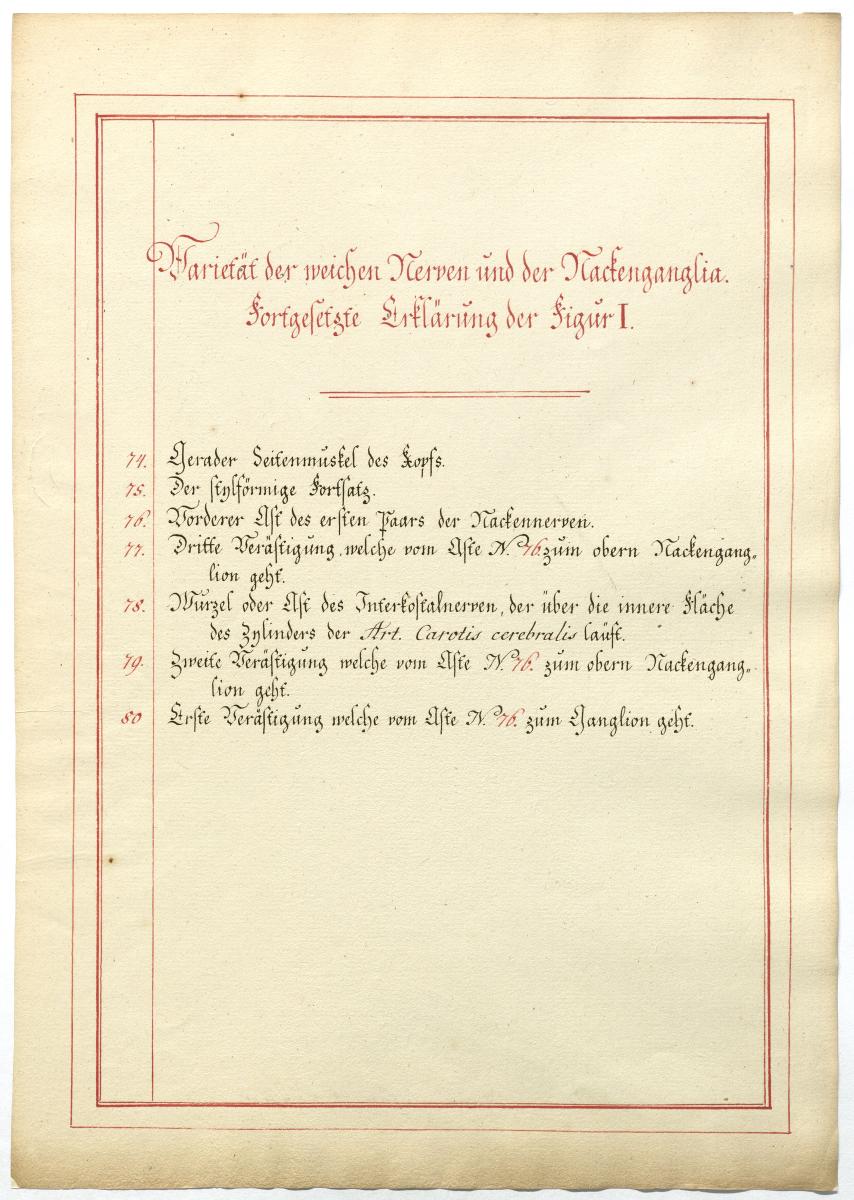 Varietät der weichen Nerven und der Nackenganglia.
Fortgesetzte Erklärung der Figur I.
74. Gerader Seitenmuskel des Kopfs.
75. Der stylförmige Fortsatz.
76. Vorderer Ast des ersten Paars der Nackennerven.
77. Dritte Verästigung, welche vom Aste N.º 76. zum obern Nackengang-
lion geht.
78. Wurzel oder Ast des Interkostalnerven, der über die innere Fläche
des Zylinders der Art. Carotis cerebralis läuft.
79. Zweite Verästigung welche vom Aste N.º 76. zum obern Nackengang-
lion geht.
80 Erste Verästigung welche vom Aste N.º 76. zum Ganglion geht.